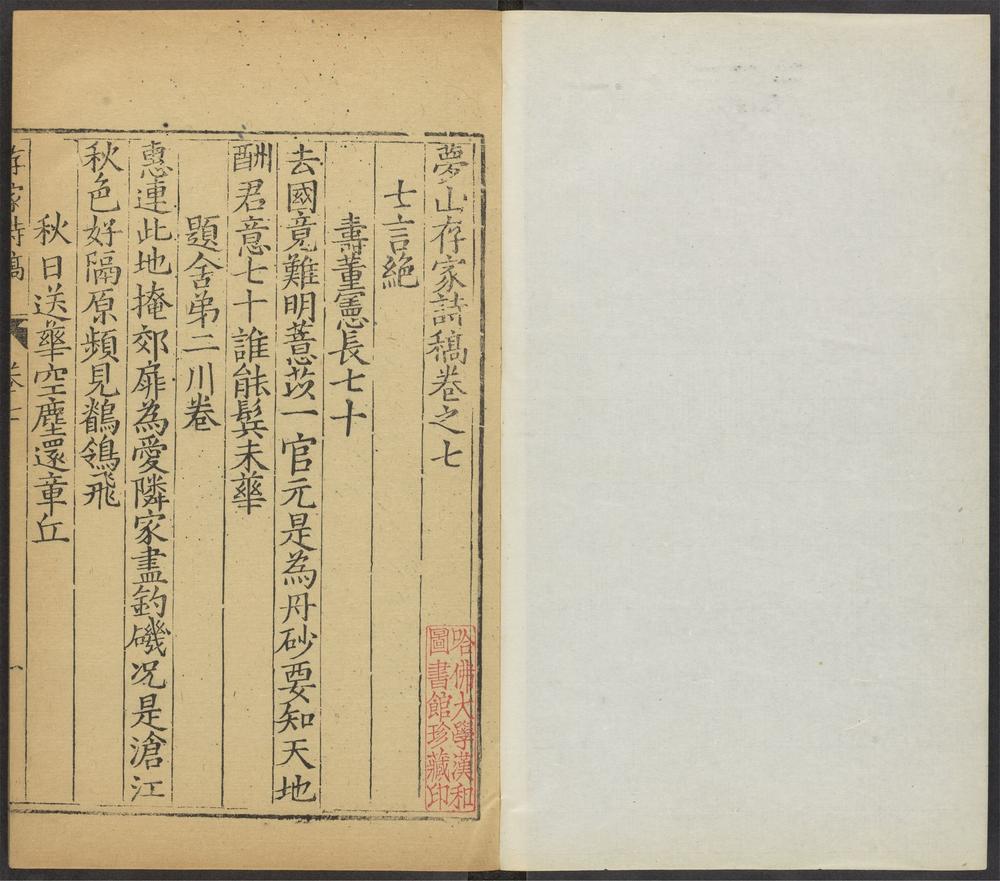 夢山存家詩稿卷之七
七言絶
壽董憲長七十
去國竟難明薏苡一官元是為丹砂要知天地
酬君意七十誰能鬂未華
題舍弟二川卷
惠連此地掩郊扉為愛隣家盡釣磯况是滄江
秋色好隔原頻見鶺鴒飛
秋日送華空塵還章丘
存家詩稿 卷七 一
哈佛大學漢和
圖書館珍藏印